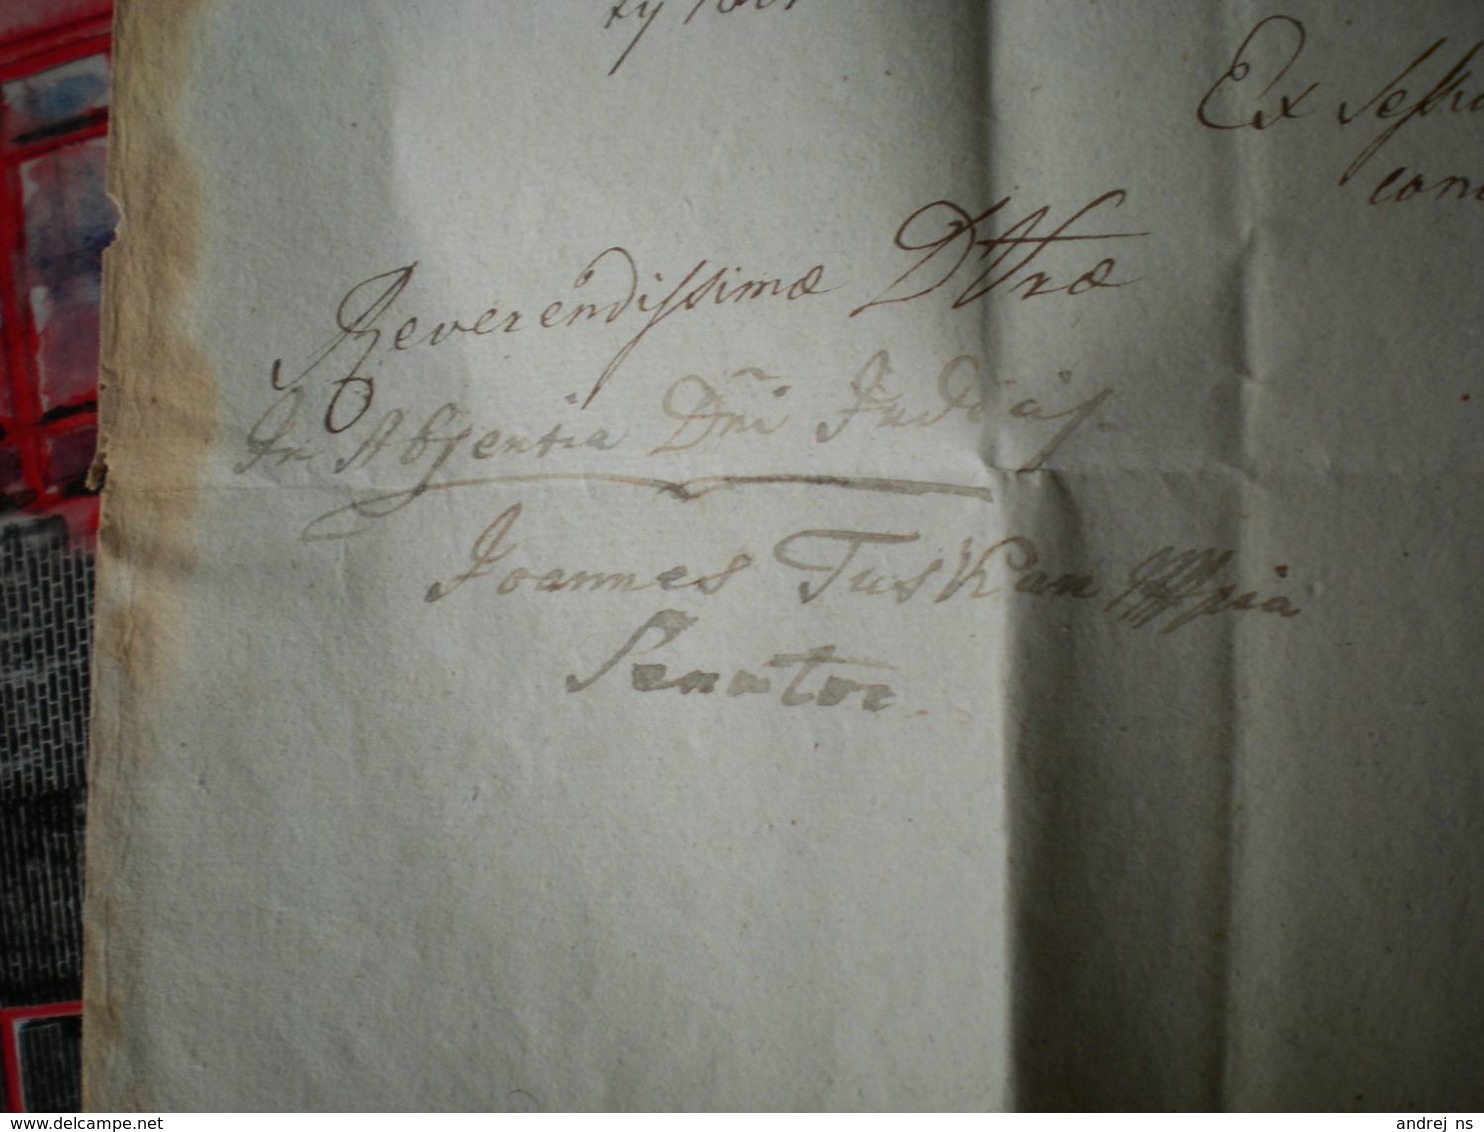 Ex Sessi
con
Reverendissimæ Dttræ
In Absentia Dni Judicis
Joannes Tuskan
Senator
delcampe.net
andrej_ns